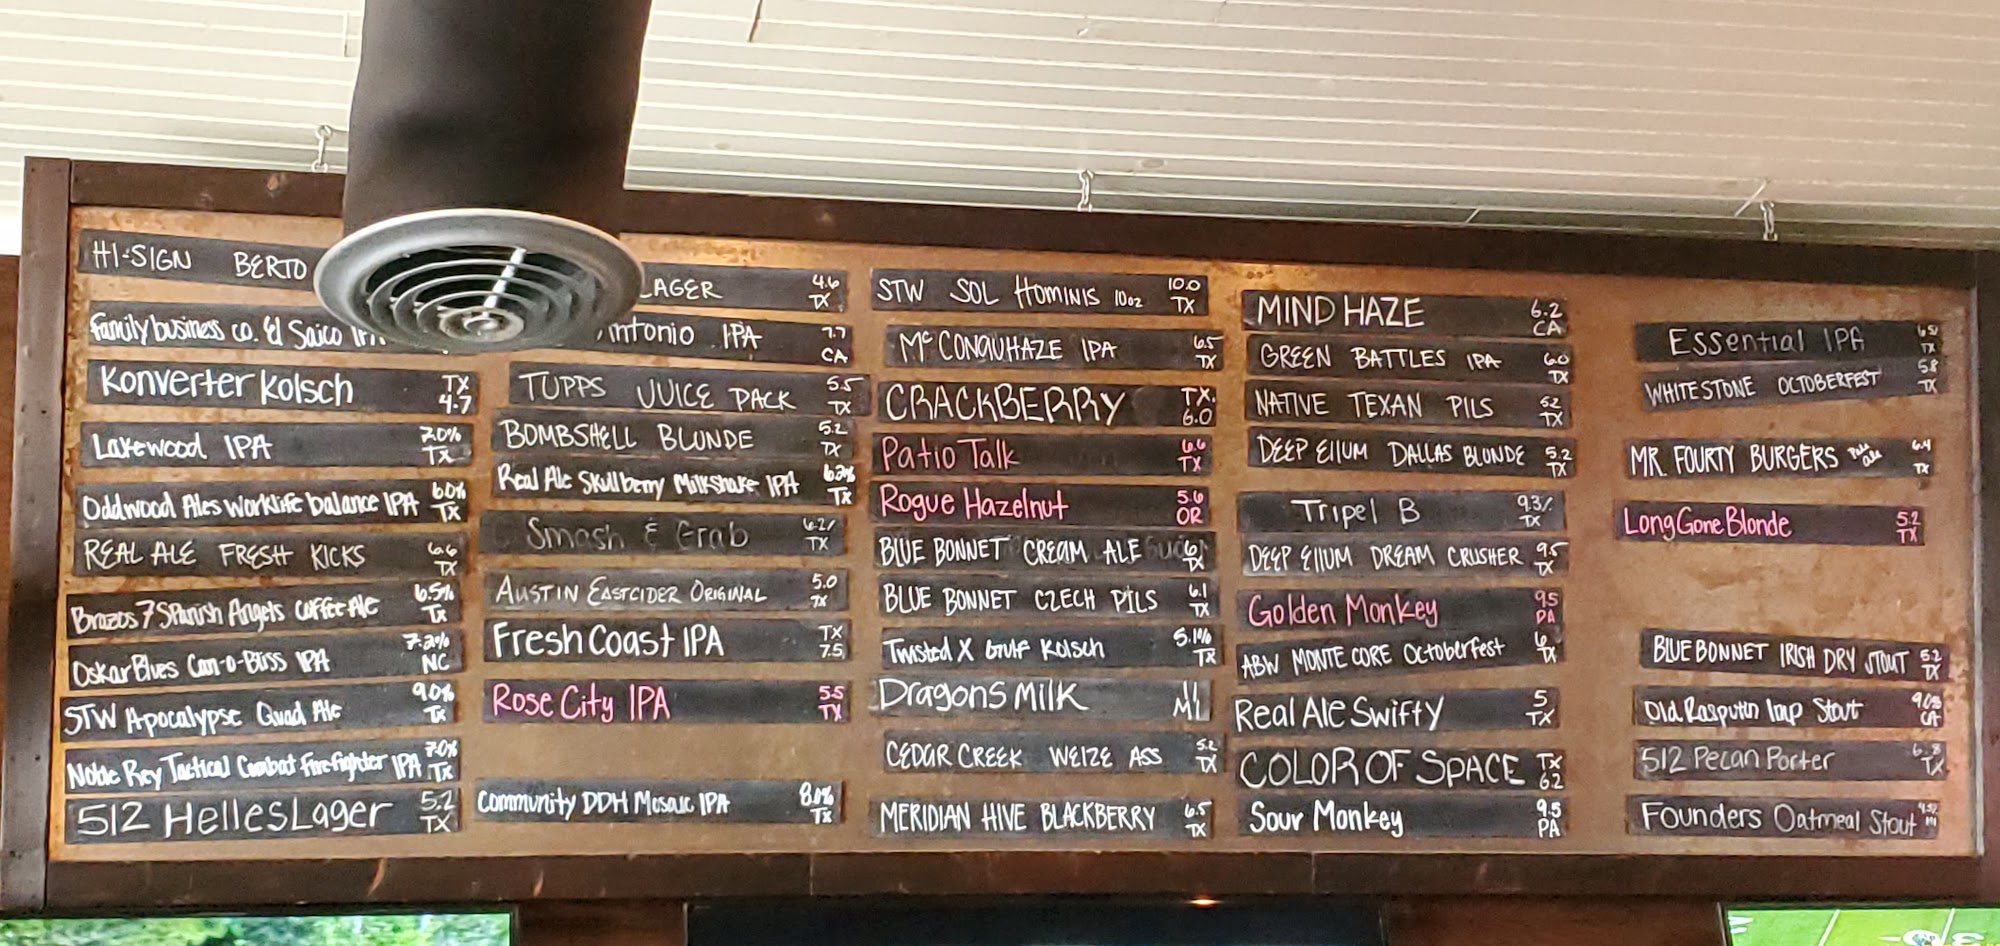 HI-SIGN BERTO
family business co. El Saico IPA
Konverter Kolsch TX 4.7
Lakewood IPA 7.0% TX
Oddwood Ales Worklife balance IPA 6.0% TX
REAL ALE FRESH KICKS 6.6 TX
Brazos 7 Spanish Angels Coffee Ale 6.5% Tx
Oskar Blues Can-o-Bliss IPA 7.2% NC
STW Apocalypse Quad Ale 9.0% Tx
Noble Rey Tactical Combat Firefighter IPA 7.0% Tx
512 Helles Lager 5.2 TX
LAGER 4.6 TX
Antonio IPA 7.7 CA
TUPPS JUICE PACK 5.5 TX
BOMBSHELL BLONDE 5.2 TX
Real Ale Skullberry Milkshake IPA 6.2% Tx
Smash & Grab 6.2% TX
AUSTIN EASTCIDER ORIGINAL 5.0 TX
Fresh Coast IPA TX 7.5
Rose City IPA 5.5 TX
Community DDH Mosaic IPA 8.0% Tx
STW SOL HOMINIS 10oz 10.0 TX
McCONAUHAZE IPA 6.5 TX
CRACKBERRY TX. 6.0
Patio Talk 6.6 TX
Rogue Hazelnut 5.6 OR
BLUE BONNET CREAM ALE 6 TX
BLUE BONNET CZECH PILS 6.1 TX
Twisted X Gulf Kolsch 5.1% Tx
Dragons Milk 11 MI
CEDAR CREEK WEIZE ASS 5.2 TX
MERIDIAN HIVE BLACKBERRY 6.5 TX
MIND HAZE 6.2 CA
GREEN BATTLES IPA 6.0 TX
NATIVE TEXAN PILS 5.2 TX
DEEP Ellum DALLAS BLONDE 5.2 TX
Tripel B 9.3% TX
DEEP Ellum DREAM CRUSHER 9.5 TX
Golden Monkey 9.5 PA
ABW MONTE CORE Octoberfest 6 TX
Real Ale Swifty 5 TX
COLOR OF SPACE TX 6.2
Sour Monkey 9.5 PA
Essential IPA TX
WHITESTONE OCTOBERFEST 5.8 TX
MR. FOURTY BURGERS Pale ale 6.4 TX
Long Gone Blonde 5.2 TX
BLUE BONNET IRISH DRY STOUT 5.2 TX
Old Rasputin Imp Stout 9.0% CA
512 Pecan Porter 6.8 TX
Founders Oatmeal Stout